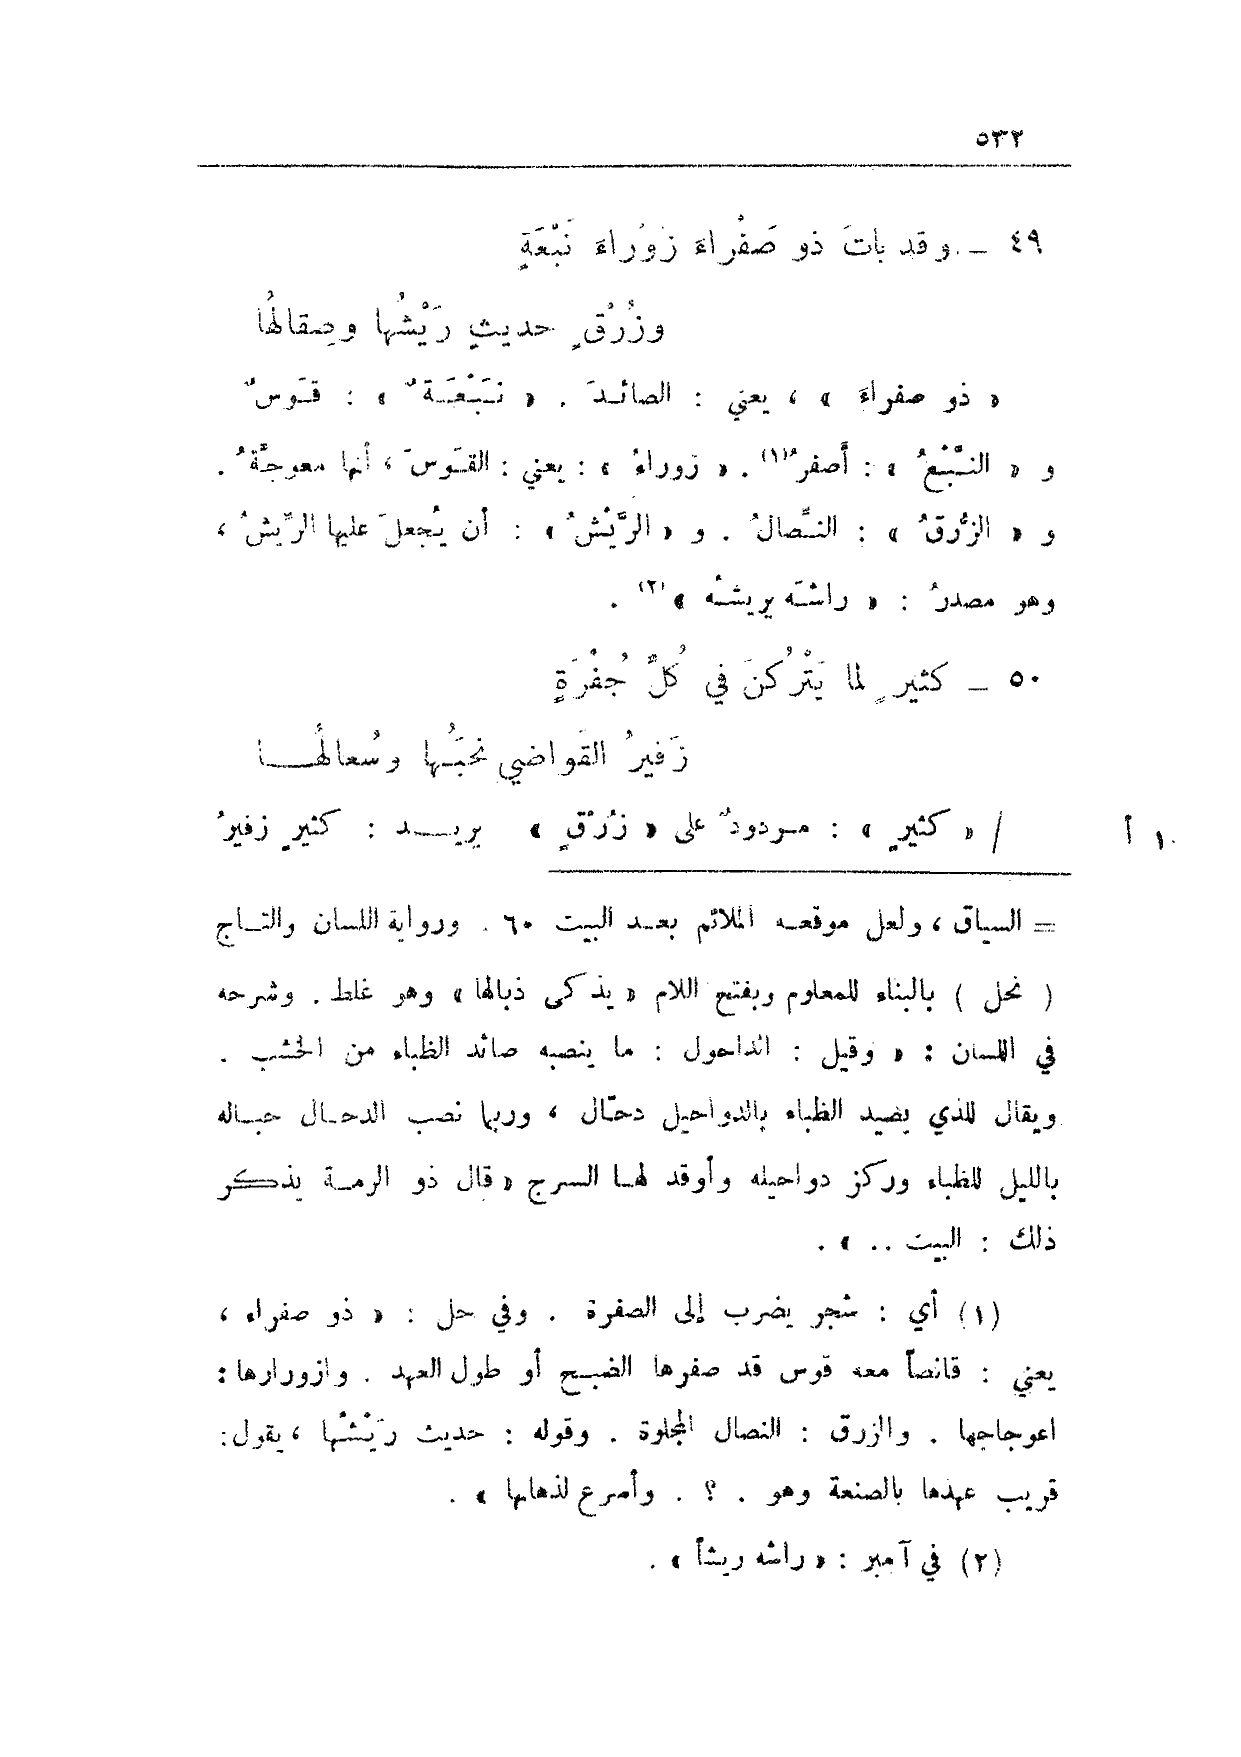 ٥٣٢
٤٩ ــ وقد باتَ ذو صَفْراءَ زَوْراءَ نَبْعَةٍ
وزُرْقٍ حديثٍ رَيْشُها وصِقالُها
« ذو صفراءَ » ، يعني : الصائدَ . « نَبْعَةٌ » : قَوسٌ
و « النَّبْعُ » : أصفرُ(١) . « زوراءُ » : يعني : القَوسَ ، أنها معوجَّةٌ .
و « الزُّرقُ » : النِّصالُ . و « الرَّيْشُ » : أن يُجعلَ عليها الرِّيشُ ،
وهو مصدرُ : « راشَه يريشُه »(٢) .
٥٠ ــ كثيرٍ لما يَتْرُكْنَ في كُلِّ جُفْرَةٍ
زَفيرُ القَواضي نَحبُها وسُعالُهــا
١٠ أ / « كثيرٍ » : مردودٌ على « زُرْقٍ » يريــد : كثيرٍ زفيرُ
= السياق ، ولعل موقعه الملائم بعد البيت ٦٠ . ورواية اللسان والتاج
( نحل ) بالبناء للمعلوم وبفتح اللام « يذكى ذبالها » وهو غلط . وشرحه
في اللسان : « وقيل : الداحول : ما ينصبه صائد الظباء من الخشب .
ويقال للذي يصيد الظباء بالدواحيل دحّال ، وربما نصب الدحال حباله
بالليل للظباء وركز دواحيله وأوقد لها السرج « قال ذو الرمة يذكر
ذلك : البيت .. » .
(١) أي : شجر يضرب إلى الصفرة . وفي حل : « ذو صفراء ،
يعني : قانصاً معه قوس قد صفرها الضبح أو طول العهد . وازورارها :
اعوجاجها . والزرق : النصال المجلوة . وقوله : حديث رَيْشُها ، يقول :
قريب عهدها بالصنعة وهو . ؟ . وأسرع لذهابها » .
(٢) في آمبر : « راشه ريشاً » .